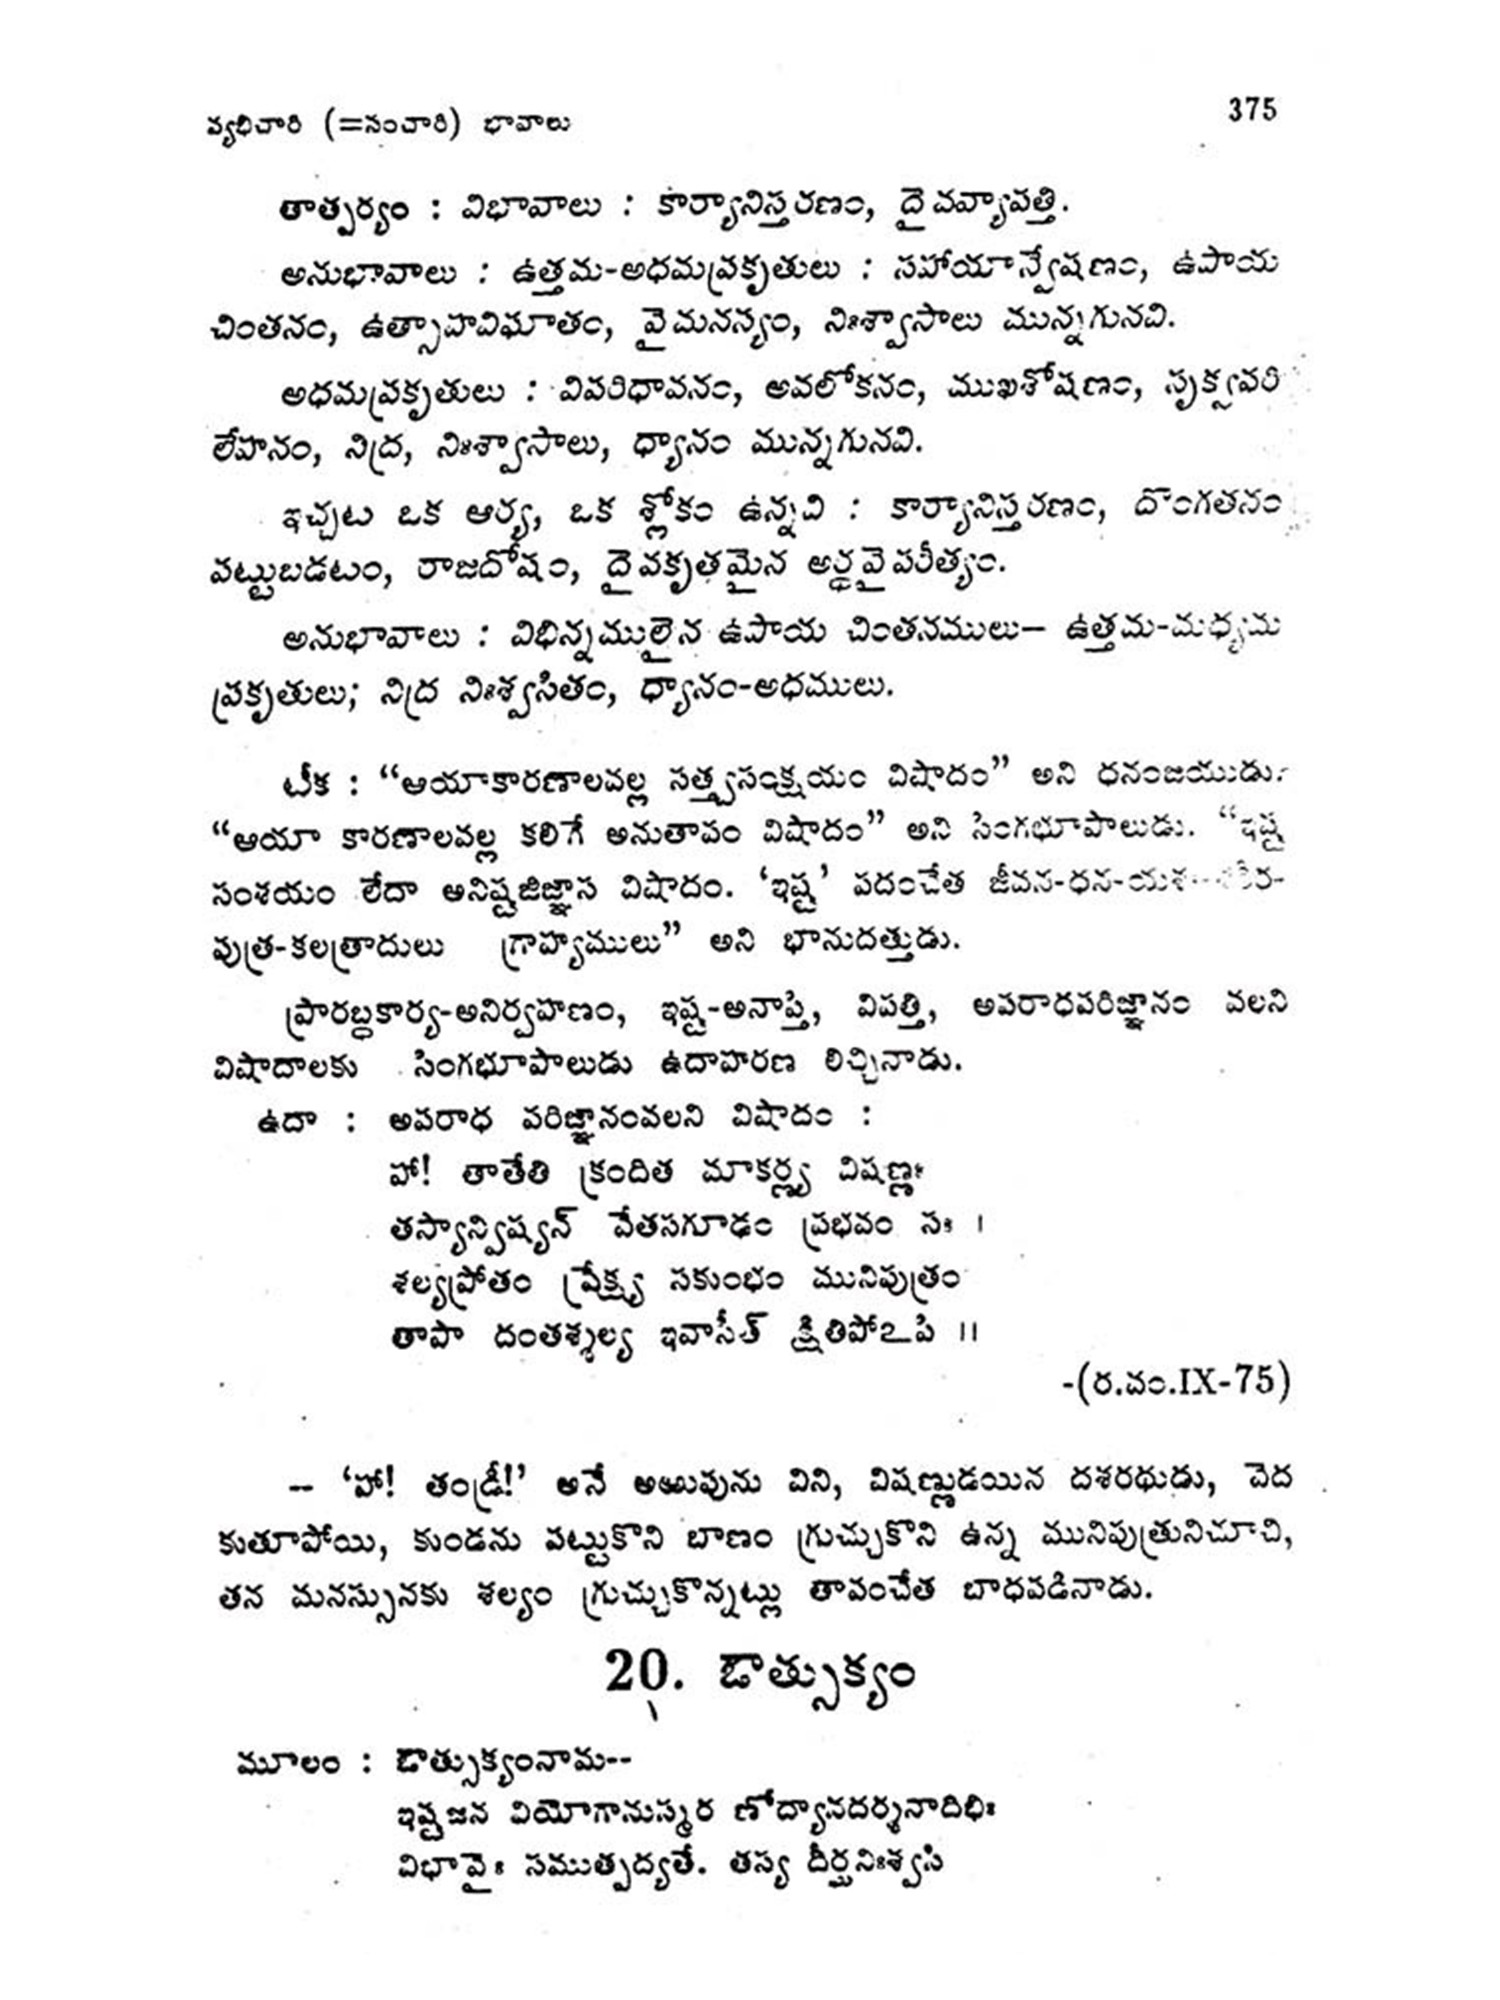 వ్యభిచారి (=సంచారి) భావాలు 375
తాత్పర్యం : విభావాలు : కార్యానిస్తరణం, దైవవ్యాపత్తి.
అనుభావాలు : ఉత్తమ-అధమప్రకృతులు : సహాయాన్వేషణం, ఉపాయ
చింతనం, ఉత్సాహవిఘాతం, వైమనస్యం, నిఃశ్వాసాలు మున్నగునవి.
అధమప్రకృతులు : విపరిధావనం, అవలోకనం, ముఖశోషణం, సృక్వపరి
లేహనం, నిద్ర, నిఃశ్వాసాలు, ధ్యానం మున్నగునవి.
ఇచ్చట ఒక ఆర్య, ఒక శ్లోకం ఉన్నవి : కార్యానిస్తరణం, దొంగతనం
పట్టుబడటం, రాజదోషం, దైవకృతమైన అర్థవైపరీత్యం.
అనుభావాలు : విభిన్నములైన ఉపాయ చింతనములు– ఉత్తమ-మధ్యమ
ప్రకృతులు; నిద్ర నిఃశ్వసితం, ధ్యానం-అధములు.
టీక : “ఆయాకారణాలవల్ల సత్త్వసంక్షయం విషాదం” అని ధనంజయుడు.
“ఆయా కారణాలవల్ల కలిగే అనుతాపం విషాదం” అని సింగభూపాలుడు. “ఇష్ట
సంశయం లేదా అనిష్టజిజ్ఞాస విషాదం. ‘ఇష్ట’ పదంచేత జీవన-ధన-యశ-
పుత్ర-కలత్రాదులు గ్రాహ్యములు” అని భానుదత్తుడు.
ప్రారబ్ధకార్య-అనిర్వహణం, ఇష్ట-అనాప్తి, విపత్తి, అపరాధపరిజ్ఞానం వలని
విషాదాలకు సింగభూపాలుడు ఉదాహరణ లిచ్చినాడు.
ఉదా : అపరాధ పరిజ్ఞానంవలని విషాదం :
హా! తాతేతి క్రందిత మాకర్ణ్య విషణ్ణః
తస్యాన్విష్యన్ వేతసగూఢం ప్రభవం సః ।
శల్యప్రోతం ప్రేక్ష్య సకుంభం మునిపుత్రం
తాపా దంతశ్శల్య ఇవాసీత్ క్షితిపోఽపి ॥
-(ర.వం.IX-75)
-- ‘హా! తండ్రీ!’ అనే అఱుపును విని, విషణ్ణుడయిన దశరథుడు, వెద
కుతూపోయి, కుండను పట్టుకొని బాణం గ్రుచ్చుకొని ఉన్న మునిపుత్రునిచూచి,
తన మనస్సునకు శల్యం గ్రుచ్చుకొన్నట్లు తాపంచేత బాధపడినాడు.
20. ఔత్సుక్యం
మూలం : ఔత్సుక్యంనామ--
ఇష్టజన వియోగానుస్మర ణోద్యానదర్శనాదిభిః
విభావైః సముత్పద్యతే. తస్య దీర్ఘనిఃశ్వసి